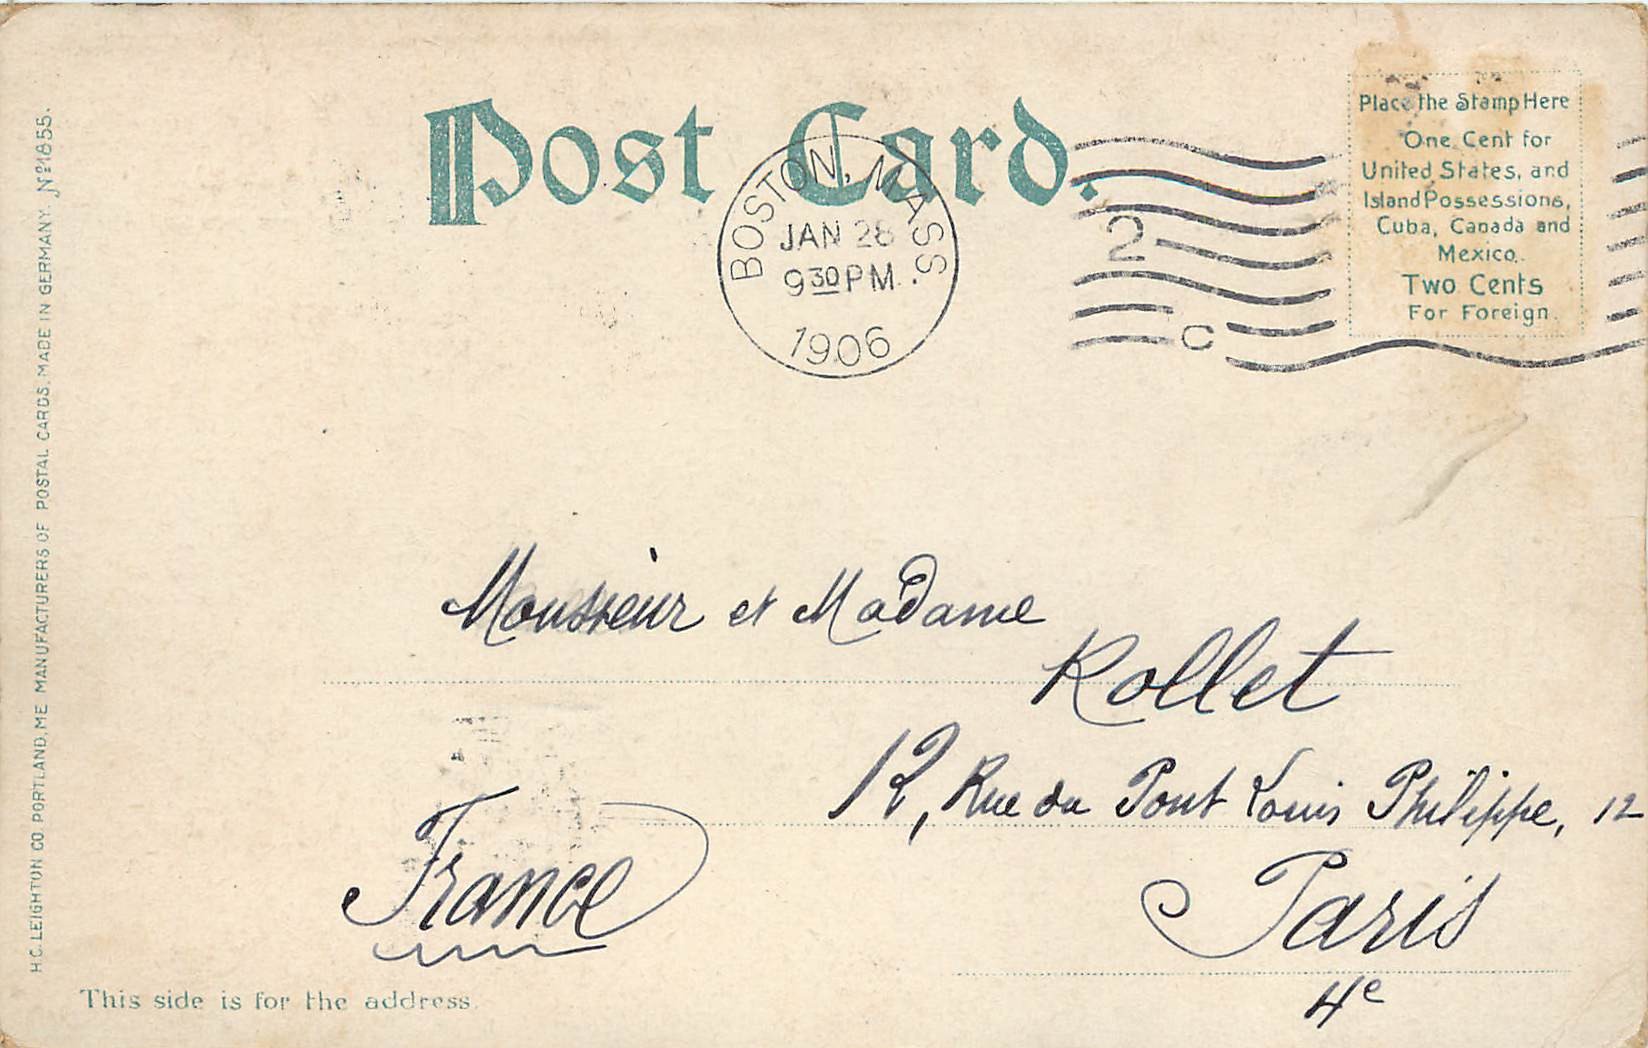 Post Card.
BOSTON, MASS.
JAN 28
9 30 PM
1906
2
C
Place the Stamp Here
One Cent for
United States, and
Island Possessions,
Cuba, Canada and
Mexico.
Two Cents
For Foreign.
Monsieur et Madame
Rollet
12, Rue du Pont Louis Philippe, 12
France
Paris
4e
This side is for the address.
H.C. LEIGHTON CO PORTLAND, ME MANUFACTURERS OF POSTAL CARDS. MADE IN GERMANY. No 1855.